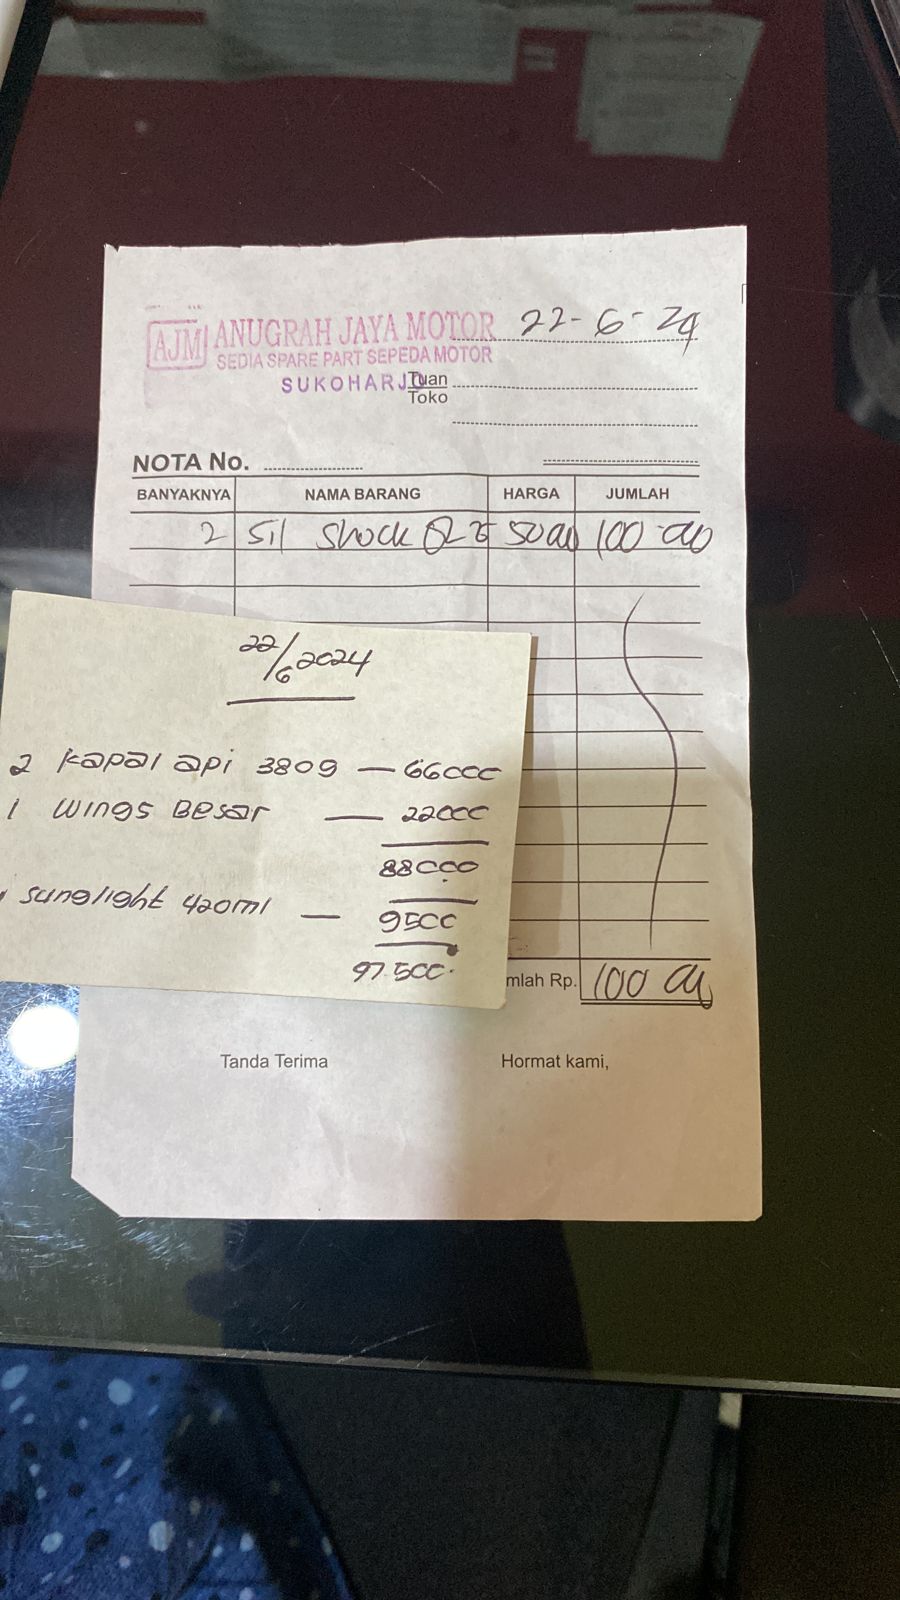 AJM ANUGRAH JAYA MOTOR
SEDIA SPARE PART SEPEDA MOTOR
SUKOHARJO
22-6-24
Tuan
Toko
NOTA No.
BANYAKNYA NAMA BARANG HARGA JUMLAH
2 Sil Shock 100
mlah Rp. 100
Tanda Terima Hormat kami,
22/6 2024
2 Kapal api 380g — 66000
1 Wings Besar — 22000
88000
sunglight 420ml — 9500
97.500.